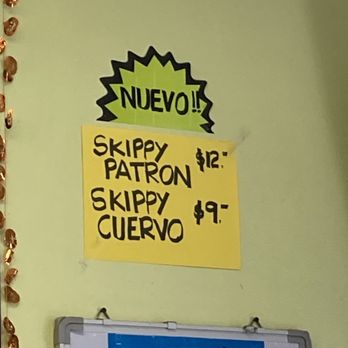 NUEVO!!
SKIPPY
PATRON $12.-
SKIPPY
CUERVO $9.-